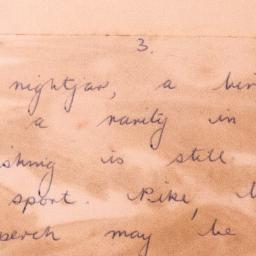 3.
nightjar, a
a rarity in
is still
sport. Pike,
perch may be